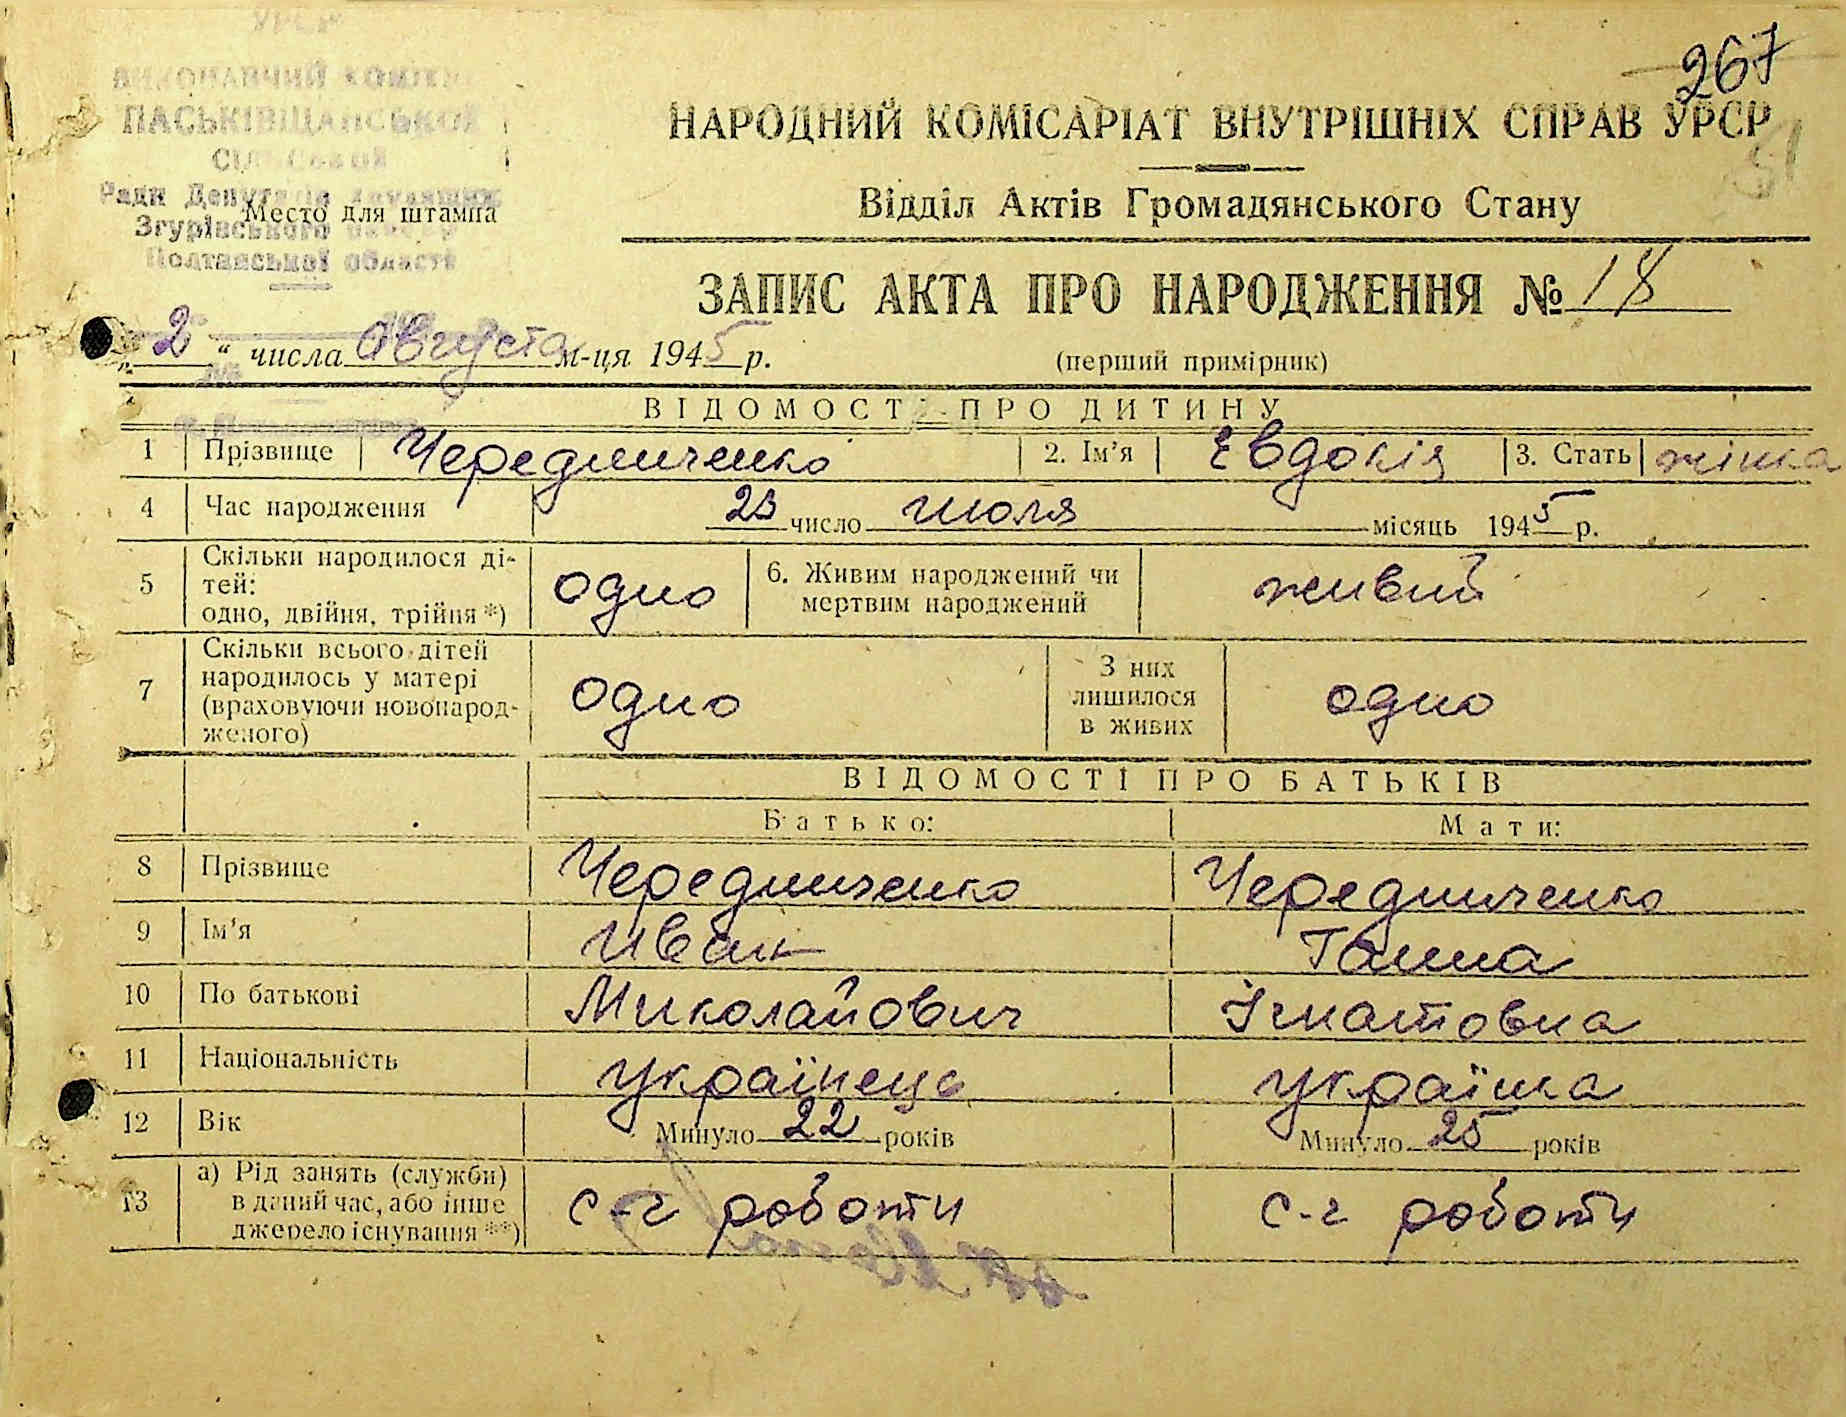 267
УРСР
ВИКОНАВЧИЙ КОМІТЕТ
ПАСЬКІВЩАНСЬКОЇ
СІЛЬСЬКОЇ
Ради Депутатів Трудящих
Згурівського району
Полтавської області
Место для штампа
НАРОДНИЙ КОМІСАРІАТ ВНУТРІШНІХ СПРАВ УРСР
Відділ Актів Громадянського Стану
ЗАПИС АКТА ПРО НАРОДЖЕННЯ № 18
„2“ числа Августа м-ця 1945 р.
(перший примірник)
ВІДОМОСТІ ПРО ДИТИНУ
1 Прізвище Чередниченко 2. Ім'я Євдокія 3. Стать жінка
4 Час народження 23 число июля місяць 1945 р.
5 Скільки народилося ді-
тей:
одно, двійня, трійня *) одно 6. Живим народжений чи
мертвим народжений живий
7 Скільки всього дітей
народилось у матері
(враховуючи новонарод-
женого) одно З них
лишилося
в живих одно
ВІДОМОСТІ ПРО БАТЬКІВ
Батько: Мати:
8 Прізвище Чередниченко Чередниченко
9 Ім'я Иван Ганна
10 По батькові Миколайович Ігнатовна
11 Національність українець українка
12 Вік Минуло 22 років Минуло 25 років
13 а) Рід занять (служби)
в даний час, або інше
джерело існування **) с-г роботи с-г роботи